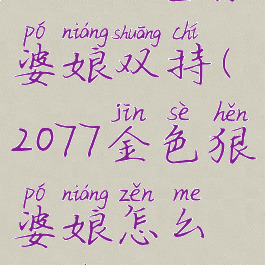 pó niáng shuāng chí
婆娘双持(
jīn sè hěn
2077金色狠
pó niáng zěn me
婆娘怎么